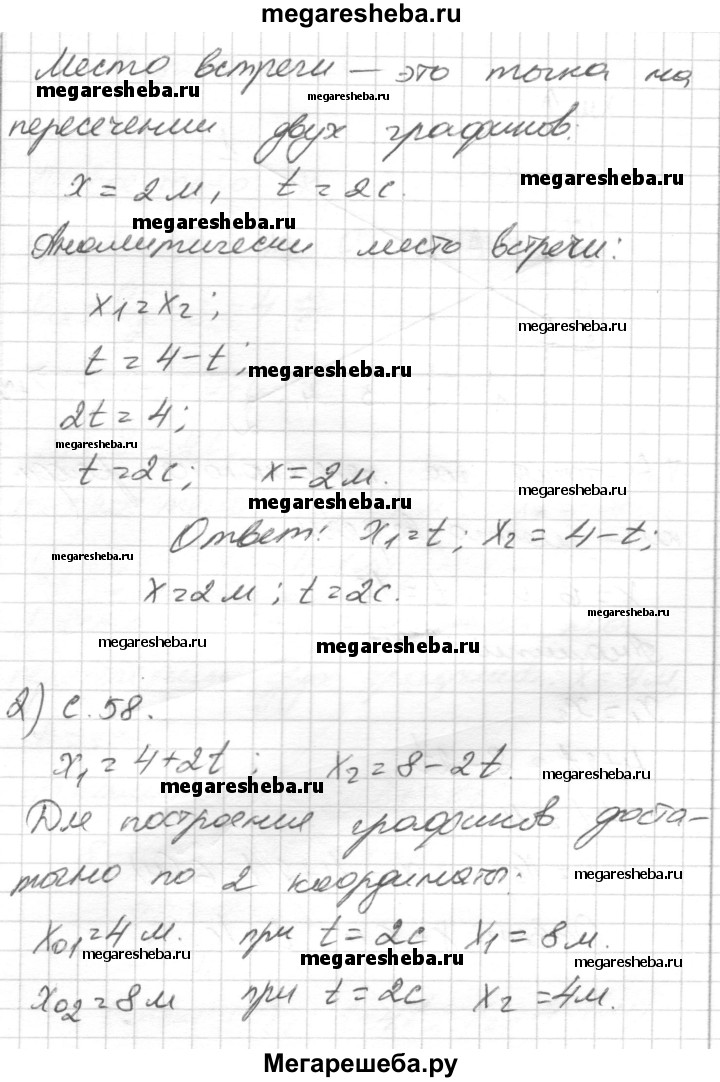 megaresheba.ru
Место встречи — это точка на
megaresheba.ru megaresheba.ru
пересечении двух графиков:
x = 2м, t = 2с. megaresheba.ru
megaresheba.ru
Аналитически место встречи:
x₁ = x₂;
megaresheba.ru
t = 4 - t; megaresheba.ru
2t = 4;
megaresheba.ru
t = 2с; x = 2м.
megaresheba.ru megaresheba.ru
Ответ: x₁ = t; x₂ = 4 - t;
megaresheba.ru
x = 2м; t = 2с.
megaresheba.ru
megaresheba.ru megaresheba.ru
2) с. 58.
x₁ = 4 + 2t; x₂ = 8 - 2t.
megaresheba.ru megaresheba.ru
Для построения графиков доста-
точно по 2 координаты: megaresheba.ru
x₀₁ = 4 м. при t = 2с x₁ = 8м.
megaresheba.ru megaresheba.ru megaresheba.ru
x₀₂ = 8м при t = 2с x₂ = 4м.
Мегарешеба.ру